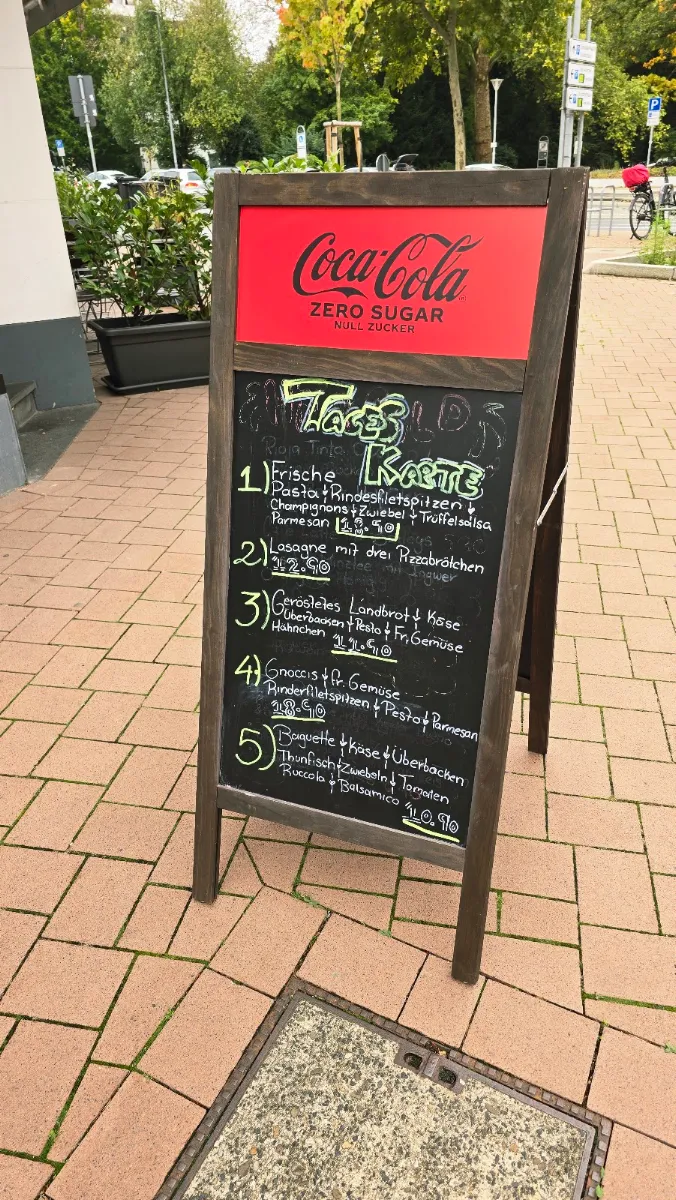 Coca-Cola
ZERO SUGAR
NULL ZUCKER
Tages
Karte
1) Frische
Pasta↓Rindesfiletspitzen↓
Champignons↓Zwiebel↓Trüffelsalsa
Parmesan
2) Lasagne mit drei Pizzabrötchen
12.90
3) Geröstetes Landbrot↓Käse
Überbacken↓Pesto↓Fr.Gemüse
Hähnchen 11.90
4) Gnoccis↓fr. Gemüse
Rinderfiletspitzen↓Pesto↓Parmesan
18.90
5) Baguette↓Käse↓Überbacken
Thunfisch↓Zwiebeln↓Tomaten
Ruccola↓Balsamico 10.90
P